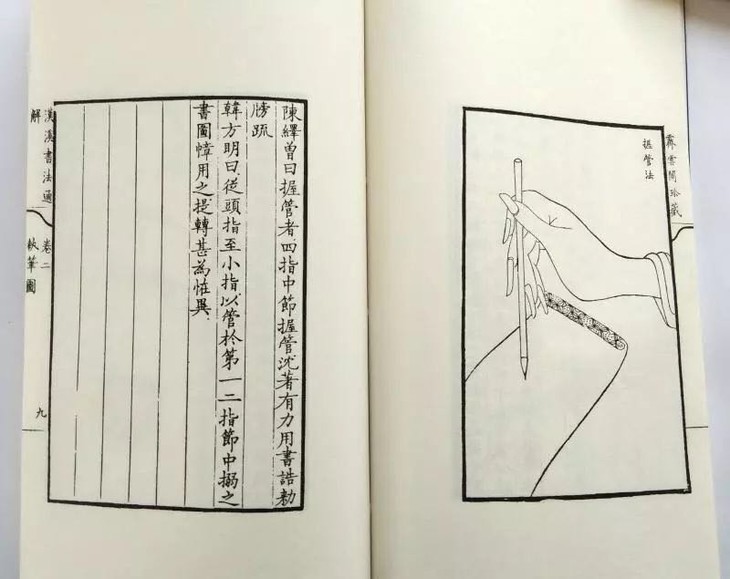 霽雲閣珍藏
握管法
陳繹曾曰握管者四指中節握管沈著有力用書誥勅
牓疏
韓方明曰從頭指至小指以管於第一二指節中搦之
書圖幛用之提轉甚為恠異
漢溪書法通
解
卷二
執筆圖
九